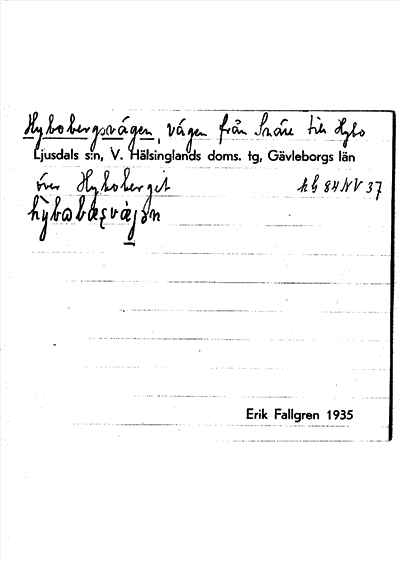 Hybobergsvägen, vägen från Snäre till Hybo
Ljusdals s:n, V. Hälsinglands doms. tg, Gävleborgs län
över Hyboberget
Erik Fallgren 1935